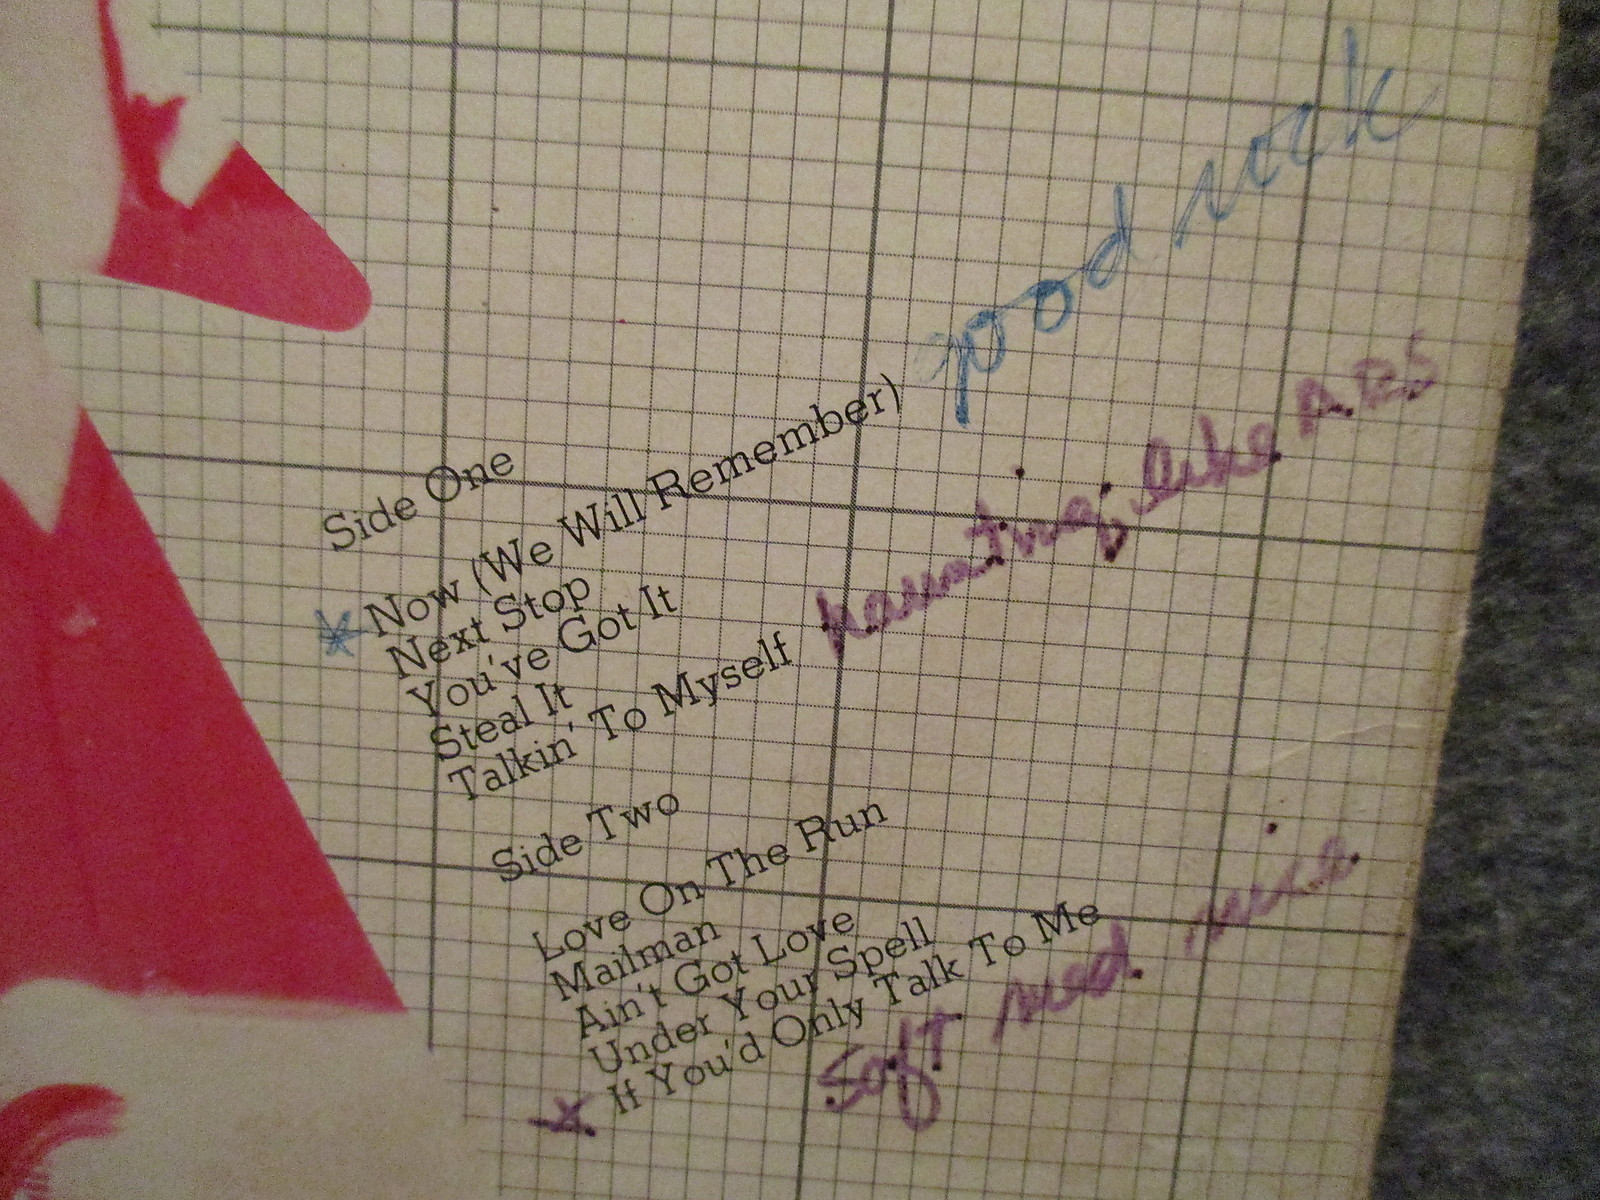 good rock
Side One
* Now (We Will Remember)
Next Stop
You've Got It
Steal It
Talkin' To Myself haunting, like ARS
Side Two
Love On The Run
Mailman
Ain't Got Love
Under Your Spell
* If You'd Only Talk To Me soft med. nice